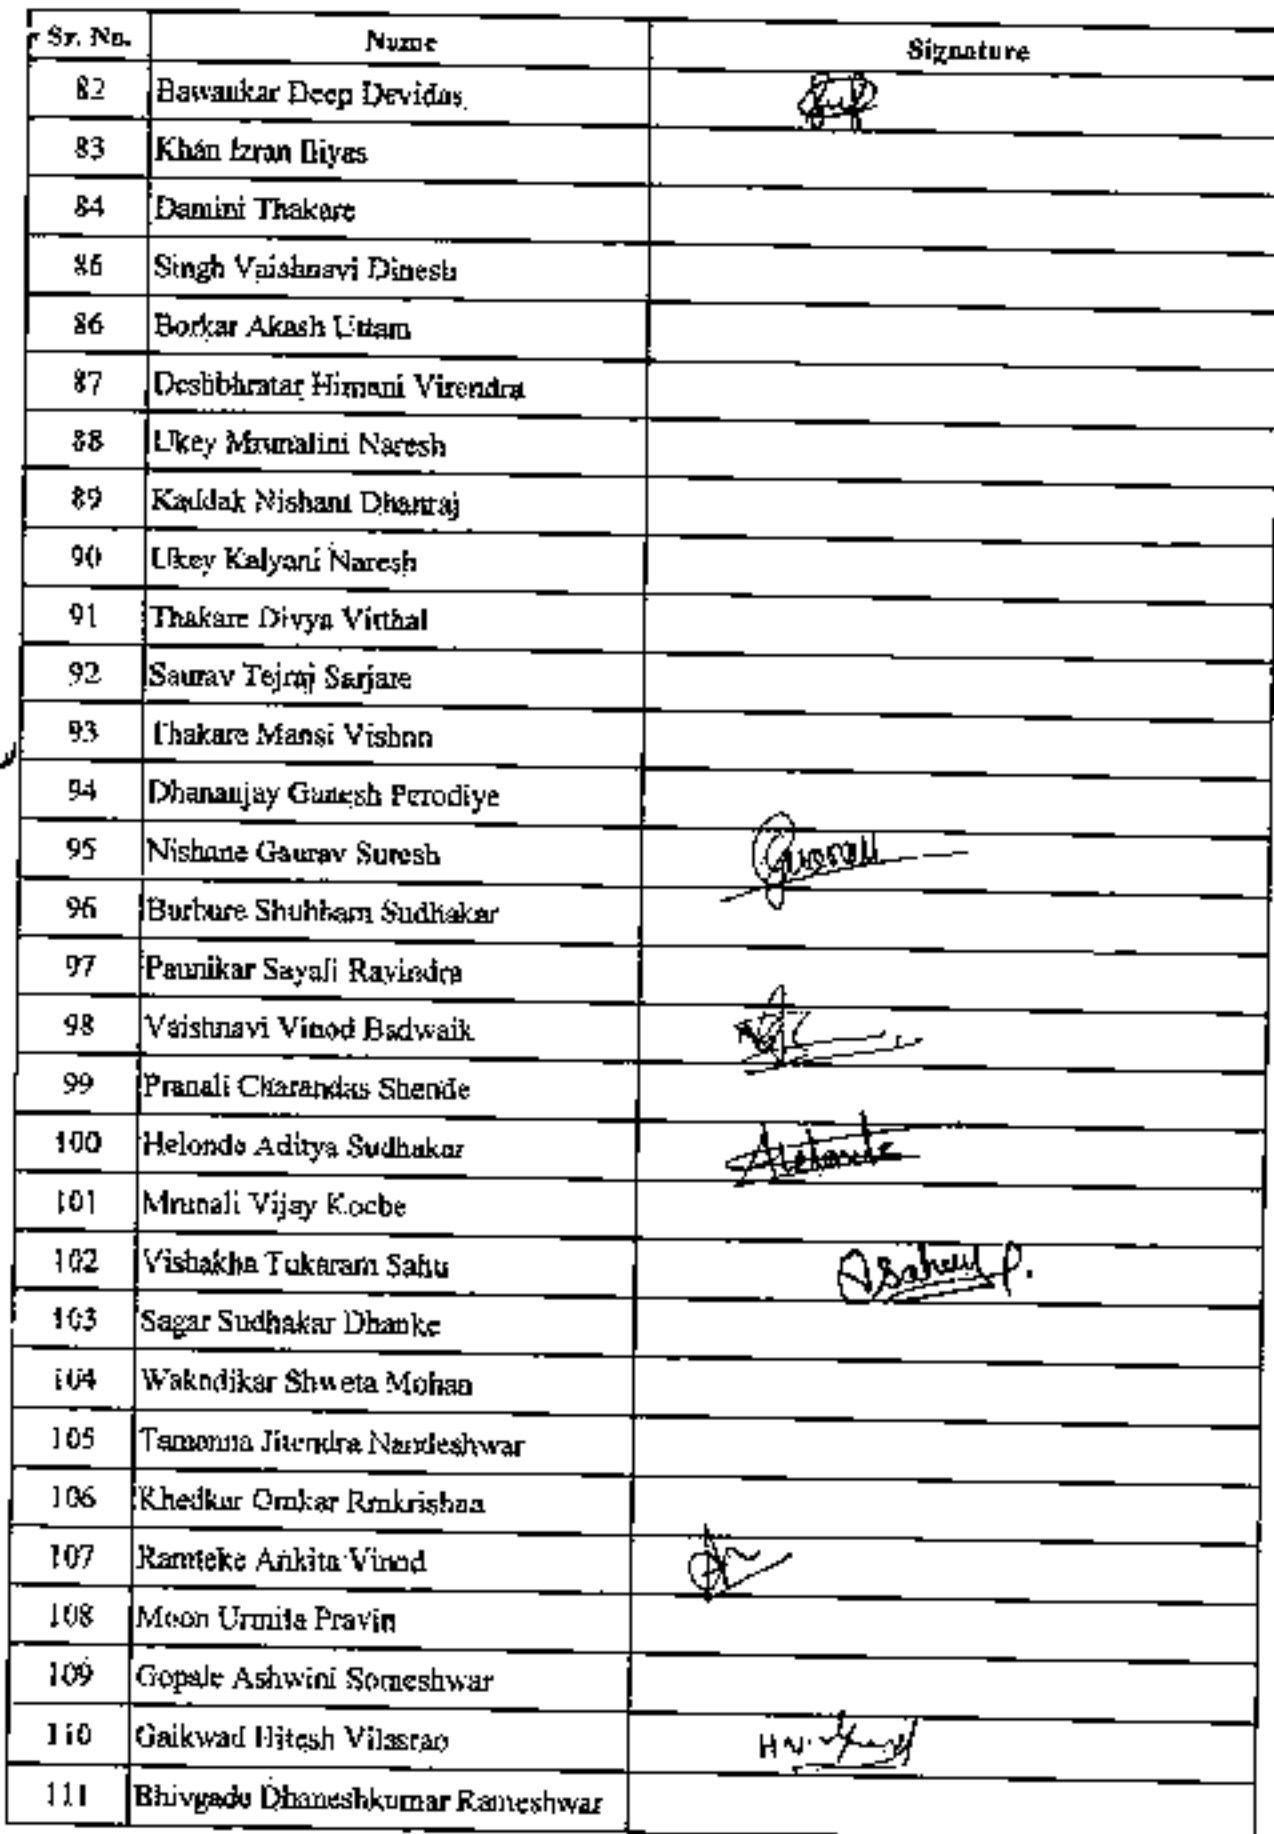 Sr. No. Name Signature
82 Bawankar Deep Devidas
83 Khan Izran Iliyas
84 Damini Thakare
86 Singh Vaishnavi Dinesh
86 Borkar Akash Uttam
87 Deshbhratar Himani Virendra
88 Ukey Mrunalini Naresh
89 Kaddak Nishant Dhanraj
90 Ukey Kalyani Naresh
91 Thakare Divya Vitthal
92 Saurav Tejraj Sarjare
93 Thakare Mansi Vishnu
94 Dhananjay Ganesh Perodiye
95 Nishane Gaurav Suresh
96 Burbure Shubham Sudhakar
97 Paunikar Sayali Ravindra
98 Vaishnavi Vinod Badwaik
99 Pranali Charandas Shende
100 Helonde Aditya Sudhakar
101 Mrunali Vijay Kocbe
102 Vishakha Tukaram Sahu
103 Sagar Sudhakar Dhanke
104 Wakodikar Shweta Mohan
105 Tamanna Jitendra Nandeshwar
106 Khedkar Omkar Rmkrishna
107 Ramteke Ankita Vinod
108 Moon Urmila Pravin
109 Gopale Ashwini Someshwar
110 Gaikwad Hitesh Vilasrao
111 Bhivgade Dhaneshkumar Rameshwar